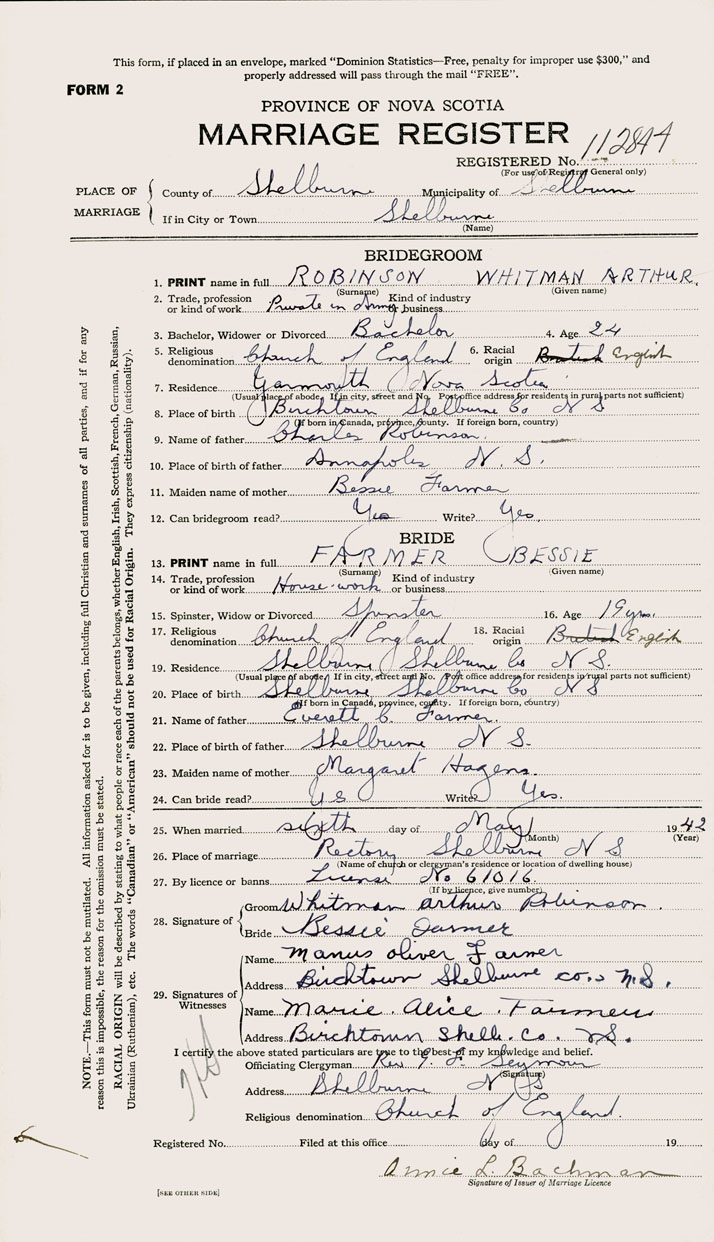 This form, if placed in an envelope, marked "Dominion Statistics—Free, penalty for improper use $300," and
properly addressed will pass through the mail "FREE".
FORM 2
PROVINCE OF NOVA SCOTIA
MARRIAGE REGISTER
REGISTERED No. 112844
(For use of Registrar General only)
PLACE OF MARRIAGE
County of Shelburne Municipality of Shelburne
If in City or Town Shelburne
(Name)
BRIDEGROOM
1. PRINT name in full ROBINSON WHITMAN ARTHUR.
(Surname) (Given name)
2. Trade, profession or kind of work Private in Army Kind of industry or business
3. Bachelor, Widower or Divorced Bachelor 4. Age 24
5. Religious denomination Church of England 6. Racial origin British English
7. Residence Yarmouth Nova Scotia
(Usual place of abode. If in city, street and No. Post office address for residents in rural parts not sufficient)
8. Place of birth Birchtown Shelburne Co N S
(If born in Canada, province, county. If foreign born, country)
9. Name of father Charles Robinson.
10. Place of birth of father Annapolis N. S.
11. Maiden name of mother Bessie Farmer
12. Can bridegroom read? Yes Write? Yes.
BRIDE
13. PRINT name in full FARMER BESSIE
(Surname) (Given name)
14. Trade, profession or kind of work House-work Kind of industry or business
15. Spinster, Widow or Divorced Spinster 16. Age 19 yrs.
17. Religious denomination Church of England 18. Racial origin British English
19. Residence Shelburne Shelburne Co N S.
(Usual place of abode. If in city, street and No. Post office address for residents in rural parts not sufficient)
20. Place of birth Shelburne Shelburne Co N S
(If born in Canada, province, county. If foreign born, country)
21. Name of father Everett C. Farmer.
22. Place of birth of father Shelburne N S.
23. Maiden name of mother Margaret Hagens.
24. Can bride read? yes Write? Yes.
25. When married sixth day of May 1942
(Month) (Year)
26. Place of marriage Rectory Shelburne N S
(Name of church or clergyman's residence or location of dwelling house)
27. By licence or banns License No 61016
(If by licence, give number)
28. Signature of
Groom Whitman arthur Robinson.
Bride Bessie Farmer
29. Signatures of Witnesses
Name Manus oliver Farmer
Address Birchtown Shelburne co., N.S.
Name Marie. Alice. Farmer
Address Birchtown Shelb. Co. N.S.
I certify the above stated particulars are true to the best of my knowledge and belief.
Officiating Clergyman Rev Seymour
(Signature)
Address Shelburne N S
Religious denomination Church of England.
Registered No. Filed at this office day of 19
Annie L. Bachman
Signature of Issuer of Marriage Licence
[SEE OTHER SIDE]
NOTE.—This form must not be mutilated. All information asked for is to be given, including full Christian and surnames of all parties, and if for any
reason this is impossible, the reason for the omission must be stated.
RACIAL ORIGIN will be described by stating to what people or race each of the parents belongs, whether English, Irish, Scottish, French, German, Russian,
Ukrainian (Ruthenian), etc. The words "Canadian" or "American" should not be used for Racial Origin. They express citizenship (nationality).